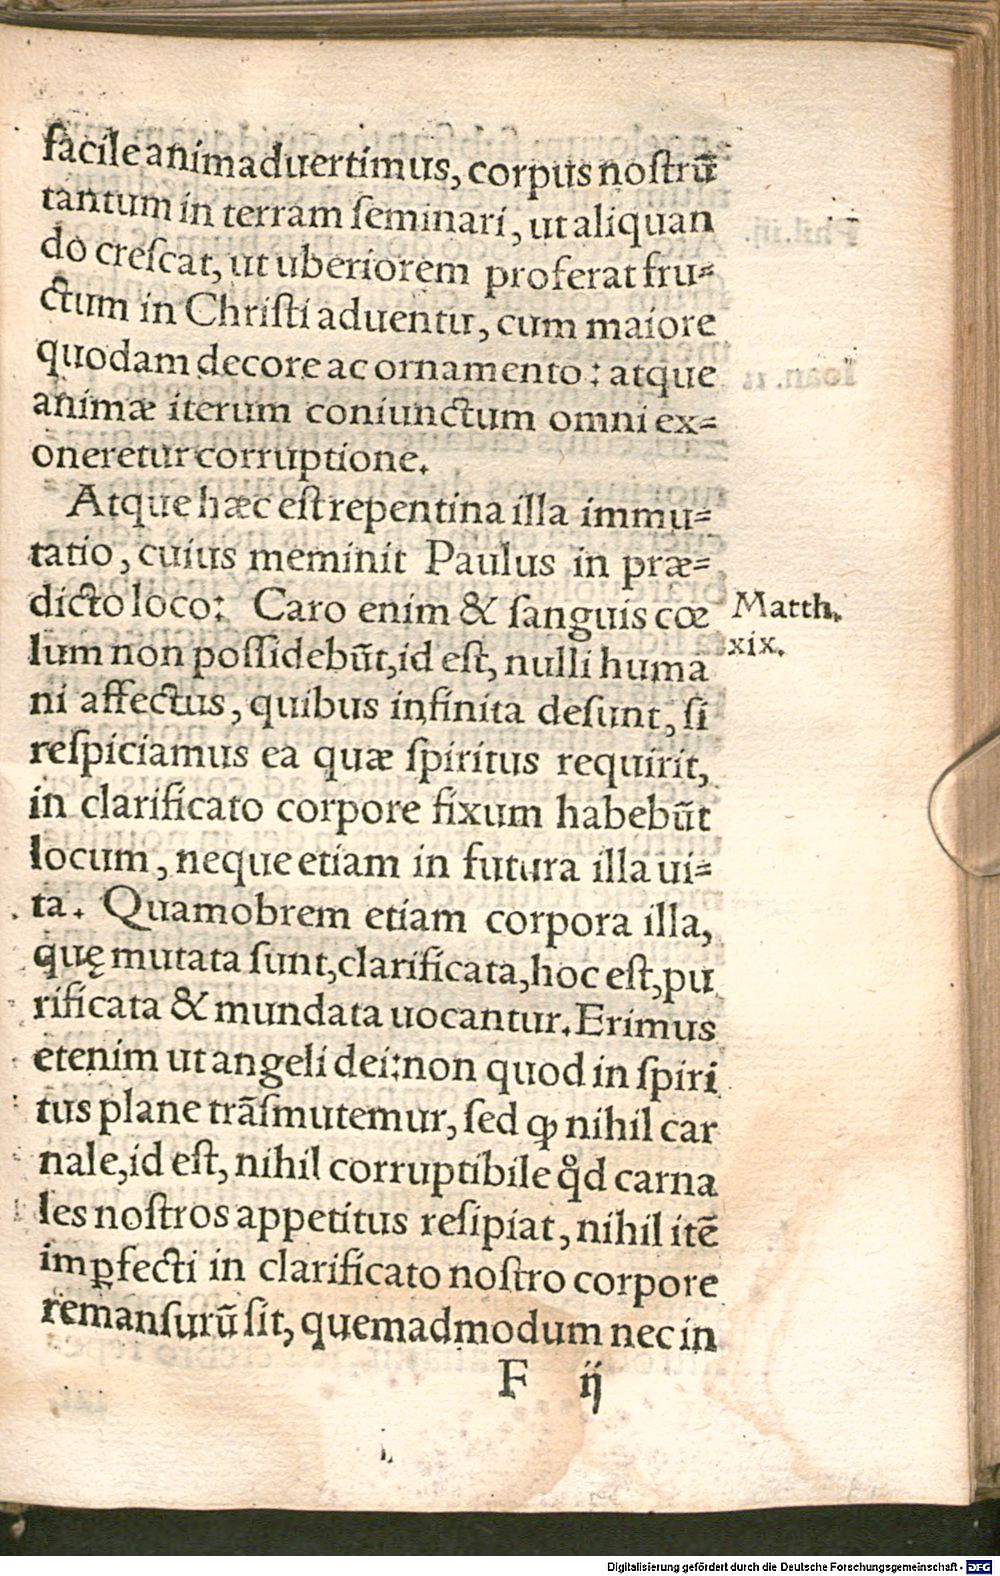 facile animaduertimus, corpus nostrũ
tantum in terram seminari, ut aliquan
do crescat, ut uberiorem proferat fru⸗
ctum in Christi aduentu, cum maiore
quodam decore ac ornamento: atque
animæ iterum coniunctum omni ex⸗
oneretur corruptione.
Atque hæc est repentina illa immu⸗
tatio, cuius meminit Paulus in præ⸗
dicto loco: Caro enim & sanguis cœ
lum non possidebũt, id est, nulli huma
ni affectus, quibus infinita desunt, si
respiciamus ea quæ spiritus requirit,
in clarificato corpore fixum habebũt
locum, neque etiam in futura illa ui⸗
ta. Quamobrem etiam corpora illa,
quę mutata sunt, clarificata, hoc est, pu
rificata & mundata uocantur. Erimus
etenim ut angeli dei: non quod in spiri
tus plane trãsmutemur, sed ꝙ nihil car
nale, id est, nihil corruptibile qd̊ carna
les nostros appetitus resipiat, nihil itẽ
imꝑfecti in clarificato nostro corpore
remansurũ sit, quemadmodum nec in
F ij
Matth.
xix.
Digitalisierung gefördert durch die Deutsche Forschungsgemeinschaft - DFG